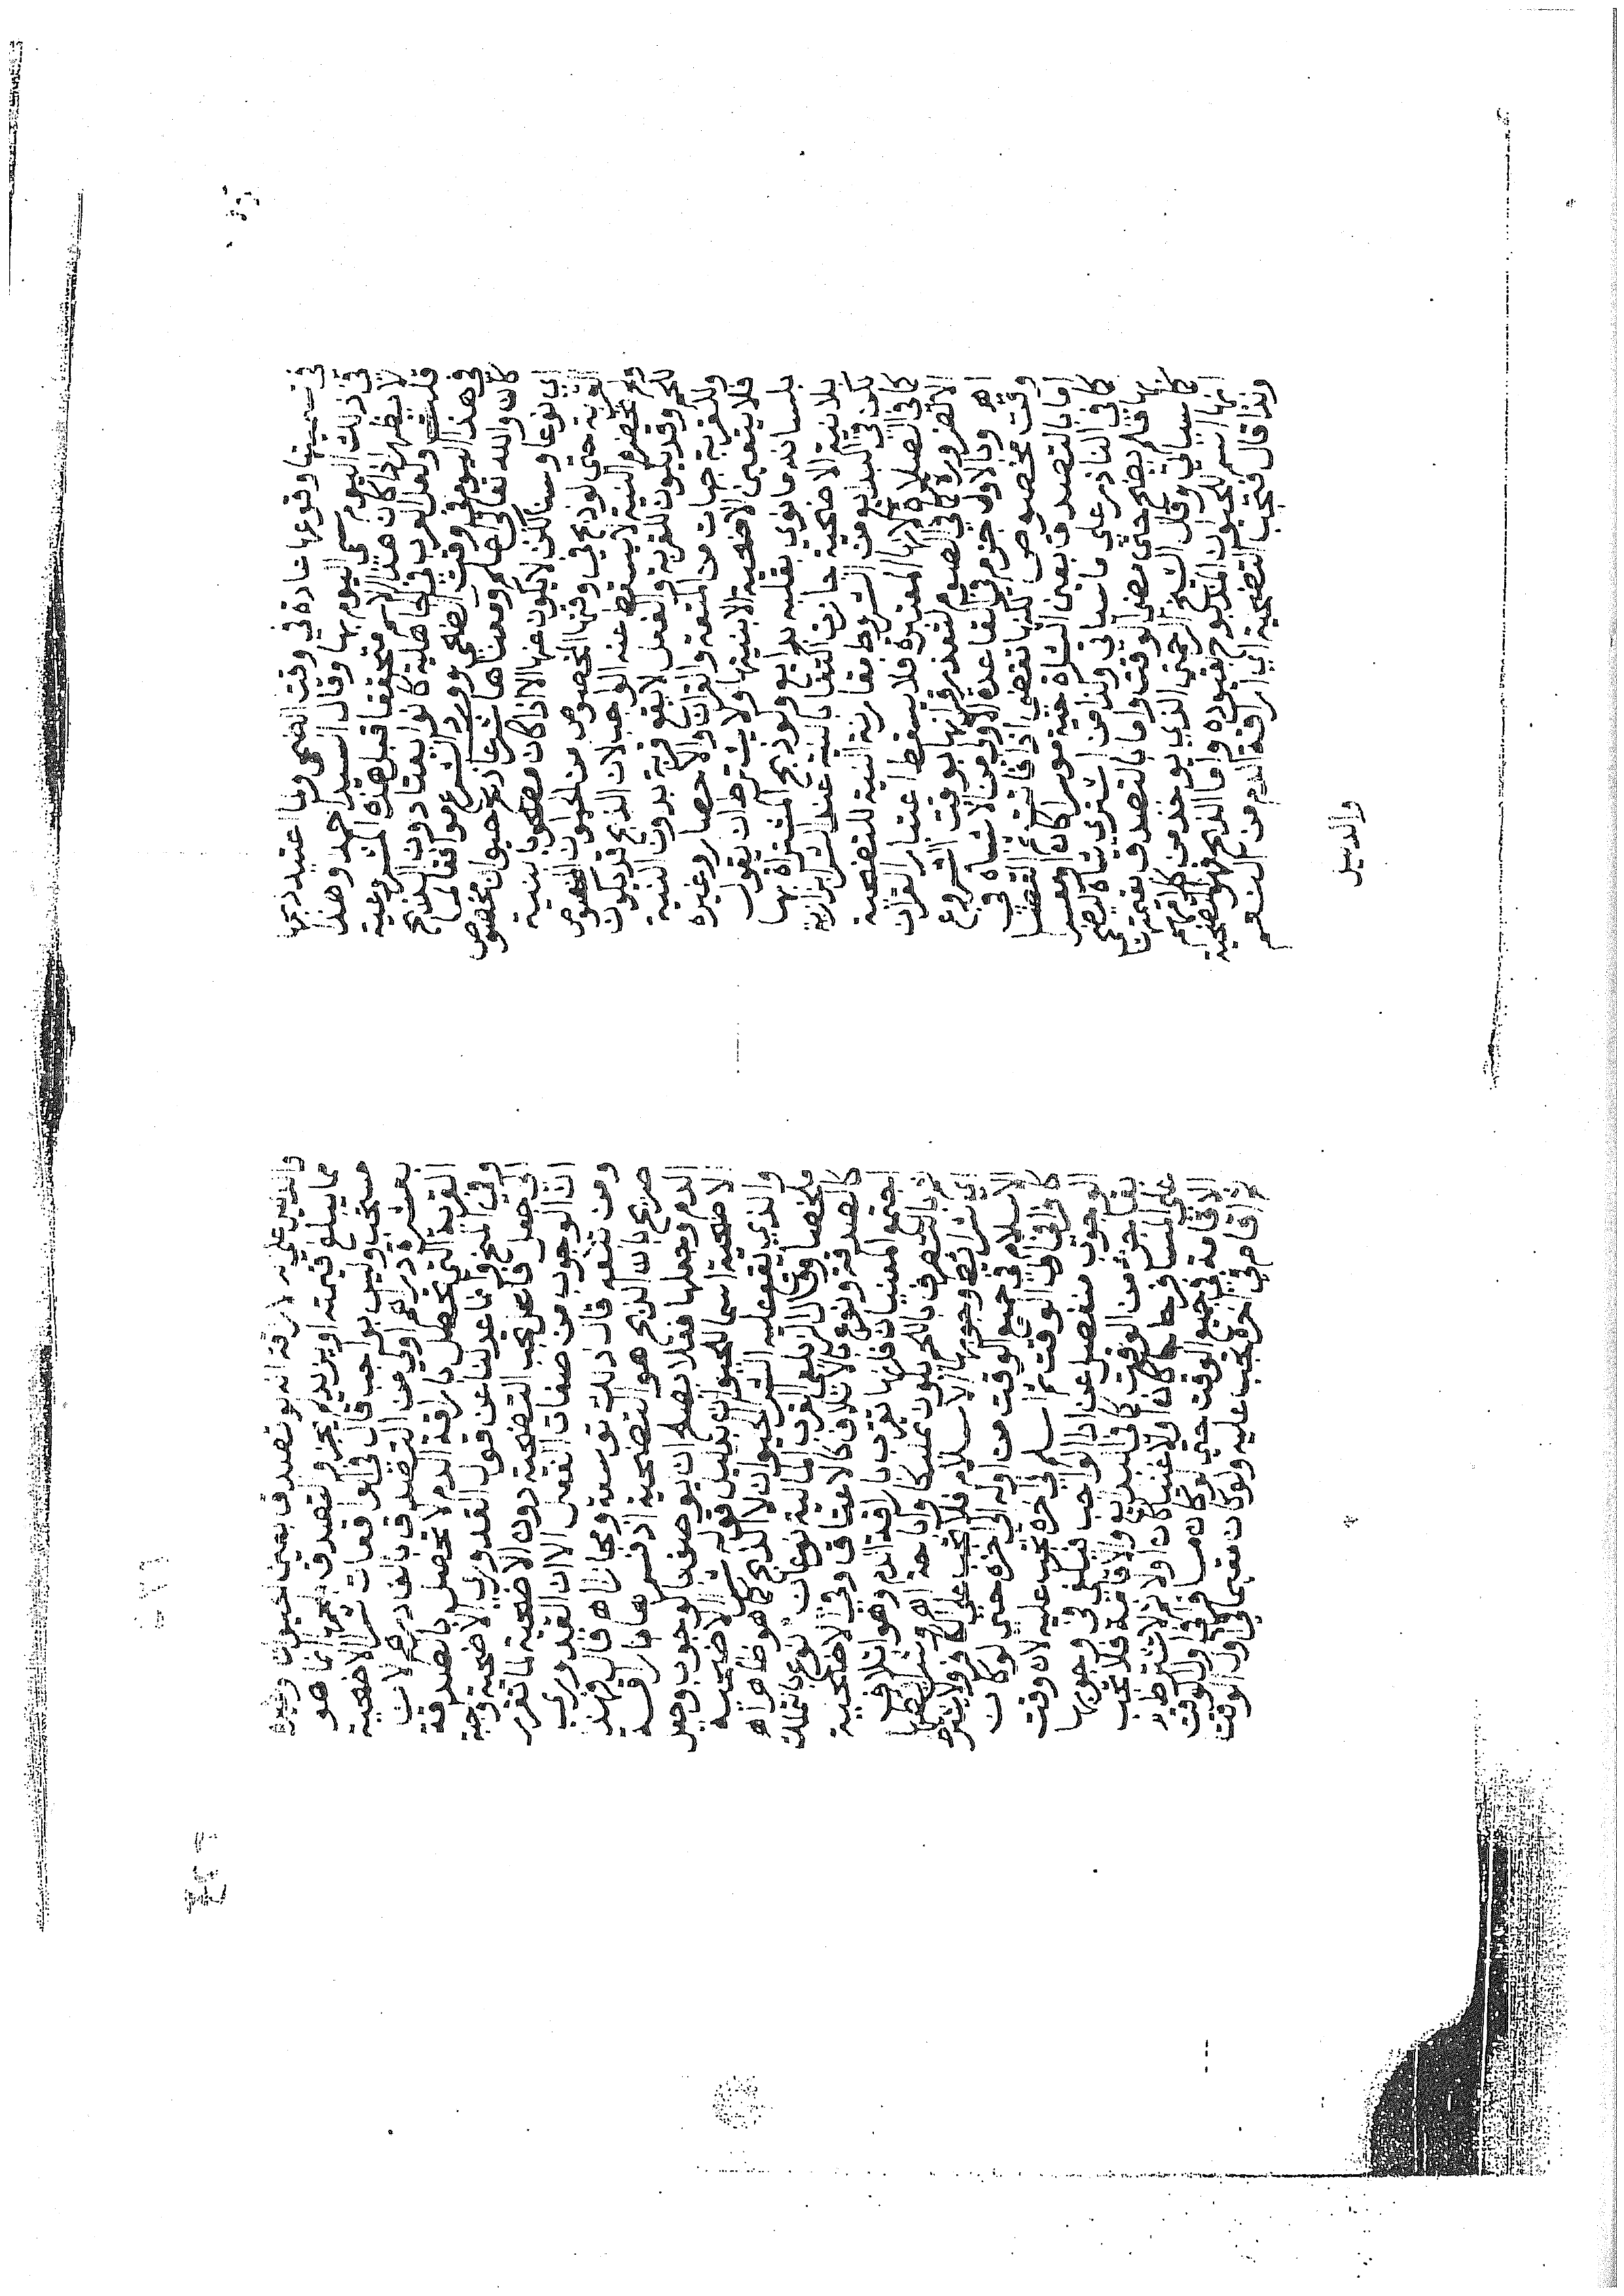 في تسميتها وقوعها عادة في وقت الضحى ولما اعتيد ذبحها
في ذلك اليوم سمي اليوم بها وقال السيد احمد وهذا
لا يظهر الا اذا كان هذا الاسم متحققا قبل هذه المشروعية
قلت ولعل العرب في الجاهلية كانوا يعتادون الذبح
في هذا اليوم في وقت الضحى وورد الشرع موافقا لما
كان والله تعالى اعلم ومعناها شرعا ذبح حيوان مخصوص
اي نوعا وسنا لكن لا يكون عنها الا اذا كان مصحوبا بنية
القربة حتى لو ذبح في وقتها المخصوص من الحيوان المخصوص
ولم تحضره النية لا يسقط عنه الواجب لان الذبح قد يكون
للحم وقد يكون للقربة والفعل لا يقع قربة بدون النية
وللقربة جهات من المتعة والقران والاحصار وغيره
فلا يتعين الاضحية الا بنيتها ولا يشترط ان يقول
بلسانه ما نوى بقلبه بدايع ولو ذبح المشتراة لها
بلا نية الاضحية جازت اكتفا بالنية عند الشرا بزازية
لكن في البدايع ومن الشروط مقارنة النية للتضحية
كما في الصلاة لانها المعتبرة فلا يسقط اعتبار القران
الا لضرورة كما في الصوم لتعذر قرانها بوقت الشروع
اه وبالاول جزم في القاعدة الاولى من الاشباه في
وقت مخصوص لكنها تقضى اذا فاتت ثم القضا
اما بالتصدق بعين الشاة حية موسرا كان او معسرا
كما في الناذر على ما سياتي وكذا من اشترى شاة ليضحي
بها فلم يضح حتى مضى الوقت واما بالتصدق بقيمتها
كما سياتي وقال الشيخ الرحمتي الذي يوخذ من كلامهم
انها اسم للحيوان المذبوح بقيوده واما الذبح فهو التضحية
ولذا قال فتجب التضحية اي اراقة الدم من النعم
والدليل
والدليل على انه الاراقة انه لو تصدق بعين الحيوان
مما يبلغ قيمته او يزيد لم يجز والتصدق بلحمها انما هو
مستحب وليس بواجب قال في الواقعات شرا الاضحية
بعشرة دراهم اولى من التصدق بالف درهم لان
القربة التي تحصل باراقة الدم لا تحصل بالصدقة
وفي المنح وانما عدلنا عن قول القدوري الاضحية واجبة
الى جعل فاعل تجب التضحية دون الاضحية لما تقرر
ان الوجوب من صفات الفعل الا ان القدوري
ومن تبعه قال ذلك توسعة ومجازا اه قال فهذا
صريح بان الذبح هو التضحية اذ فسرها باراقة
الدم وجعلها فعلا يصلح ان يوصف بالوجوب وجعل
الاضحية اسما للحيوان بدليل قوله شرا الاضحية
والذي يقع عليه الشرا الحيوان لا الذبح كما هو ظاهر اه
ملخصا وقال الزيلعي القرب المالية نوعان نوع بالتمليك
كالصدقة ونوع بالاتلاف كالاعتاق وفي الاضحية
اجتمع المعنيان فانها تقرب باراقة الدم وهو اتلاف
ثم بالتصرف باللحم يكون تمليكا واباحة اه وشرايطها
اي شرايط وجوبها الاسلام فلا تجب على الكافر ولا يشترط
الاسلام في جميع الوقت من اوله الى اخره حتى لو كان
كافرا في اول الوقت ثم اسلم في اخره تجب عليه لان وقت
الوجوب منفصل عن ادا الواجب فيكفي في وجوبها
بقا جزء من الوقت كما في البدايع والاقامة فلا تجب
على المسافر حاجا كان اولا غنيا كان اولا ولا تشترط
الاقامة في جميع الوقت حتى لو كان مسافرا في اول الوقت
ثم اقام في اخره تجب عليه ولو كان مقيما في اول الوقت